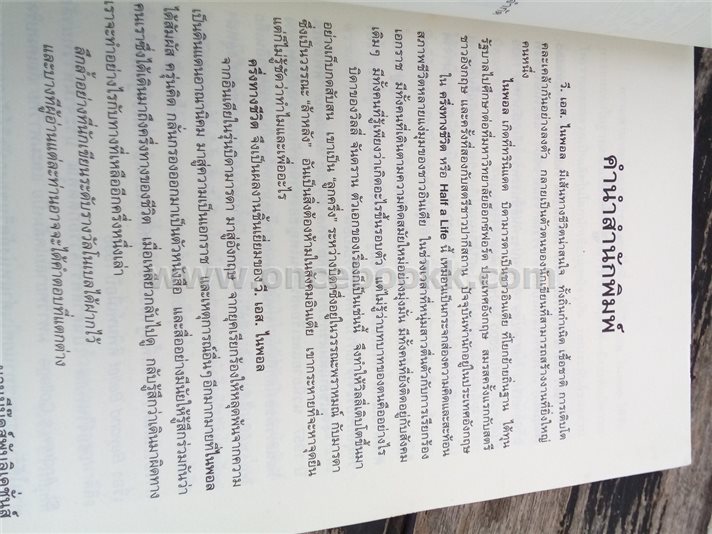 คำนำสำนักพิมพ์
วี. เอส. ไนพอล มีเส้นทางชีวิตน่าสนใจ ทั้งถิ่นกำเนิด เชื้อชาติ การเติบโต
คละเคล้ากันอย่างลงตัว กลายเป็นตัวตนของนักเขียนที่สามารถสร้างงานที่ยิ่งใหญ่
คนหนึ่ง
ไนพอล เกิดที่ทรินิแดด บิดามารดาเป็นชาวอินเดีย ที่โยกย้ายถิ่นฐาน ได้ทุน
รัฐบาลไปศึกษาต่อที่มหาวิทยาลัยอ็อกซ์ฟอร์ด ประเทศอังกฤษ สมรสครั้งแรกกับสตรี
ชาวอังกฤษ และครั้งที่สองกับสตรีชาวปากีสถาน ปัจจุบันพำนักอยู่ในประเทศอังกฤษ
ใน ครึ่งทางชีวิต หรือ Half a Life นี้ เหมือนเป็นกระจกส่องความคิดและสะท้อน
สภาพชีวิตหลายแง่มุมของชาวอินเดีย ในช่วงเวลาที่หนุ่มสาวตื่นตัวกับการเรียกร้อง
เอกราช มีทั้งคนที่เดินตามความคิดสมัยใหม่อย่างมุ่งมั่น มีทั้งคนที่ยังติดอยู่กับสังคม
เดิมๆ มีทั้งคนที่รู้เพียงว่าเกิดอะไรขึ้นรอบตัว แต่ไม่รู้ว่าบทบาทของตนคืออย่างไร
บิดาของวิลลี่ จันดราน ตัวเอกของเรื่องก็เป็นเช่นนี้ จึงทำให้วิลลี่เติบโตขึ้นมา
อย่างเก็บกดสับสน เขาเป็น "ลูกครึ่ง" ระหว่างบิดาซึ่งอยู่ในวรรณะพราหมณ์ กับมารดา
ซึ่งเป็นวรรณะ "ล้าหลัง" อันเป็นสิ่งต้องห้ามในสังคมอินเดีย เขากระหายที่จะหาจุดยืน
แต่ก็ไม่รู้ชัดว่าทำไมและเพื่ออะไร
ครึ่งทางชีวิต จึงเป็นผลงานชิ้นเยี่ยมของ วี. เอส. ไนพอล
จากอินเดียในรุ่นบิดามารดา มาสู่อังกฤษ จากยุคเรียกร้องให้หลุดพ้นจากความ
เป็นดินแดนอาณานิคม มาสู่ความเป็นเอกราช และเหตุการณ์อื่นๆ อีกมากมายที่ไนพอล
ได้สัมผัส ครุ่นคิด กลั่นกรองออกมาเป็นตัวหนังสือ และสื่ออย่างมีนัยให้รู้สึกร่วมกันว่า
คนเราซึ่งได้เดินมาถึงครึ่งทางของชีวิต เมื่อเหลียวกลับไปดู กลับรู้สึกว่าเดินมาผิดทาง
เราจะทำอย่างไรกับทางที่เหลืออีกครึ่งหนึ่งเล่า
ลึกล้ำอย่างที่นักเขียนระดับรางวัลโนเบลได้ฝากไว้
และบางทีผู้อ่านแต่ละท่านอาจจะได้คำตอบที่แตกต่าง